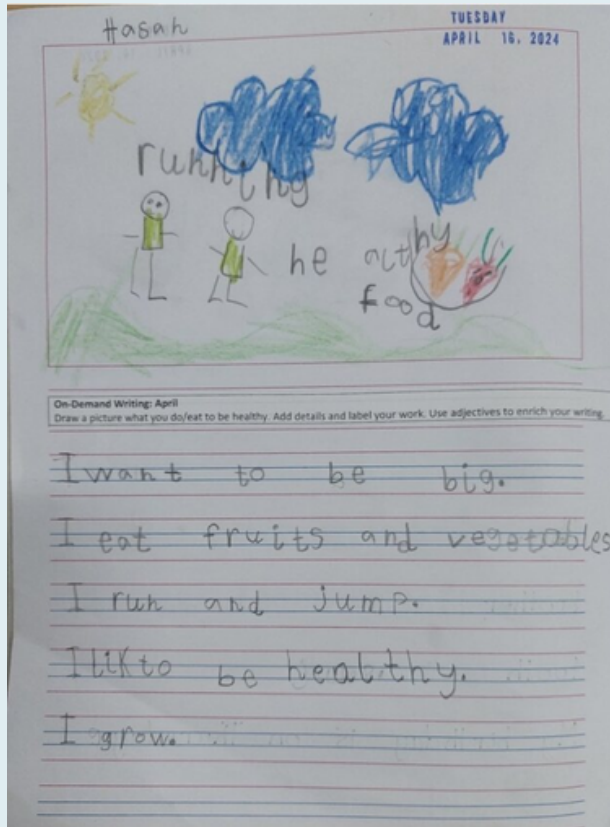 Hasan
TUESDAY
APRIL 16, 2024
running
healthy
food
On-Demand Writing: April
Draw a picture what you do/eat to be healthy. Add details and label your work. Use adjectives to enrich your writing.
I want to be big.
I eat fruits and vegetables
I run and jump.
I lik to be healthy.
I grow.